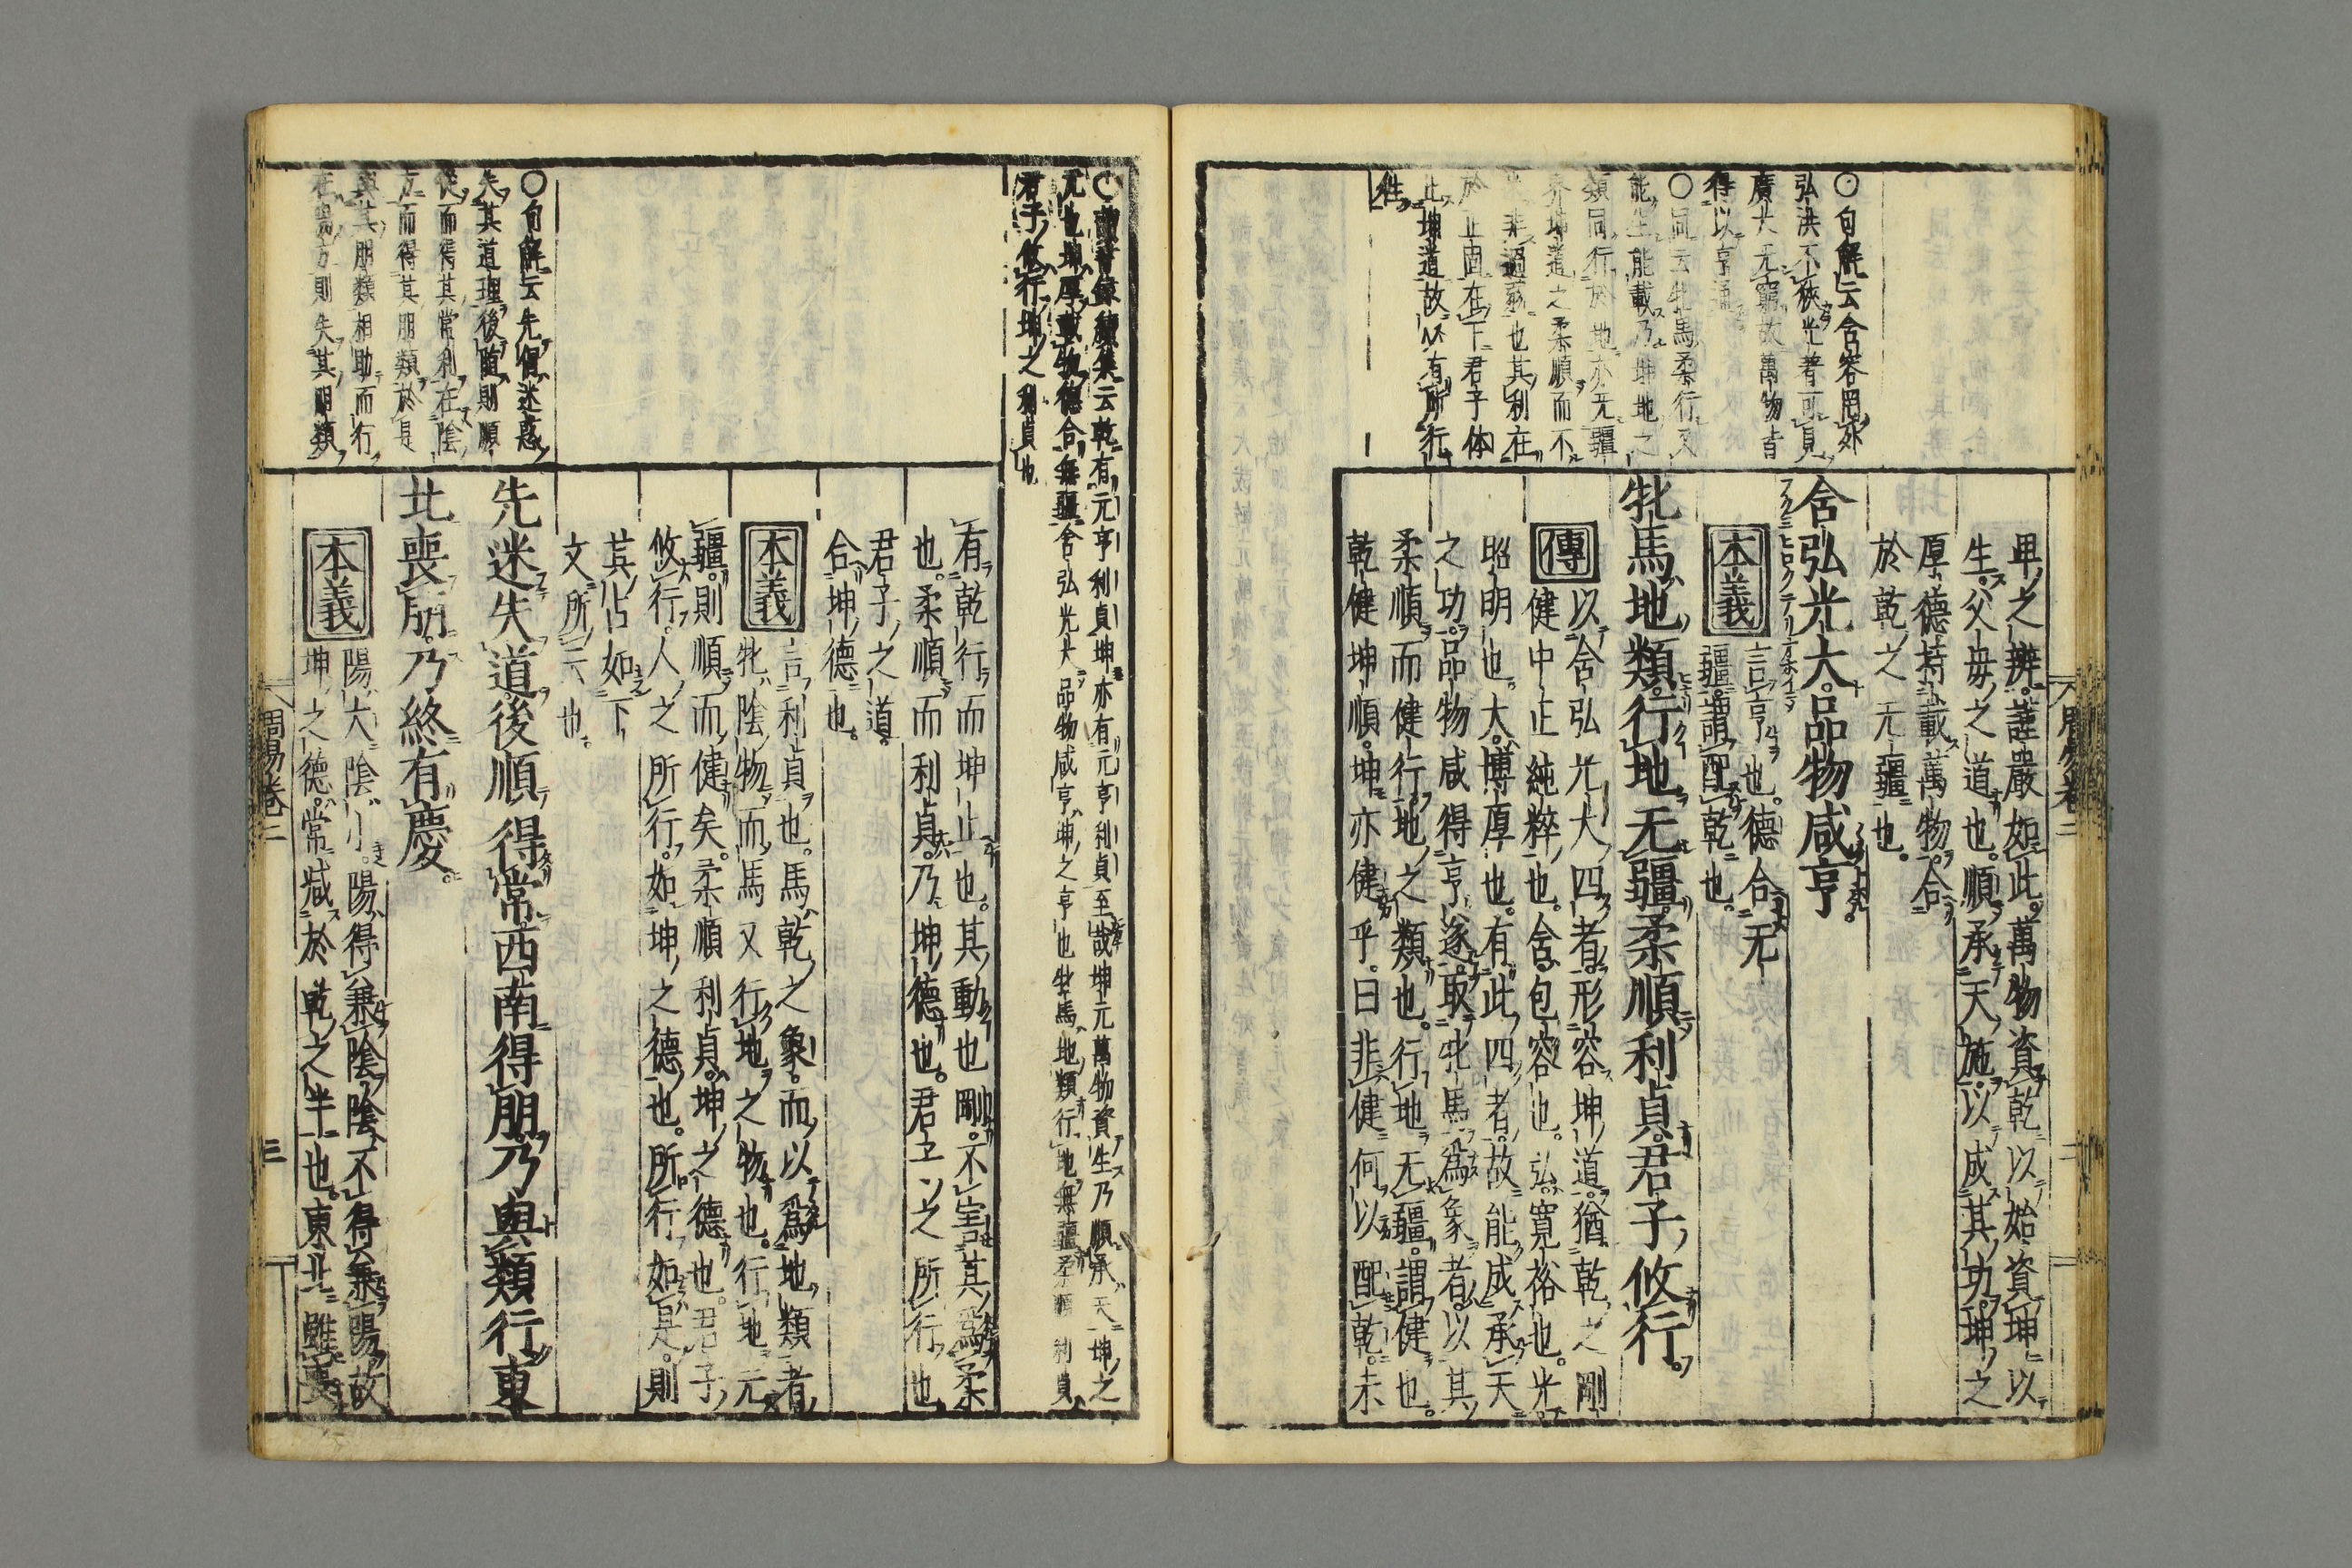 卑之辨謹嚴如此萬物資乾以始資坤以
生父母之道也順承天施以成其功坤之
厚德持載萬物合
於乾之无疆也
含弘光大品物咸亨
本義
言亨也德合无
疆謂配乾也
牝馬地類行地无疆柔順利貞君子攸行
傳
以含弘光大四者形容坤道猶乾之剛
健中正純粹也含包容也弘寬裕也光
昭明也大博厚也有此四者故能成承天
之功品物咸得亨遂取牝馬爲象者以其
柔順而健行地之類也行地无疆謂健也
乾健坤順坤亦健乎曰非健何以配乾未
○句解云含容罔外
弘洪不狹光著可見
廣大无窮故萬物皆
得以亨通
○同云牝馬柔行又
能生能載乃坤地之
類同行於地亦无疆
界坤道之柔順而不
非過弱也其利在
於止固在下君子体
此坤道故以有所行
往
周易卷二
二
○讀書錄續集云乾有元亨利貞坤亦有元亨利貞至故坤元萬物資生乃順承天坤之
元也坤厚載物德合無疆含弘光大品物咸亨坤之亨也牝馬地類行地無疆柔順利貞
君子攸行坤之利貞也
有乾行而坤止也其動也剛不害其爲柔
也柔順而利貞乃坤德也君子之所行也
君子之道
合坤德也
本義
言利貞也馬乾之象而以爲地類者
牝陰物而馬又行地之物也行地无
疆則順而健矣柔順利貞坤之德也君子
攸行人之所行如坤之德也所行如是則
其占如下
文所云也
先迷失道後順得常西南得朋乃與類行東
北喪朋乃終有慶
本義
陽大陰小陽得兼陰陰不得兼陽故
坤之德常减於乾之半也東北雖喪
○句解云先倡迷惑
失其道理後隨則順
從而得其常利在陰
方而得其朋類於是
與其朋類相助而行
在陽方則失其朋類
周易卷二
三